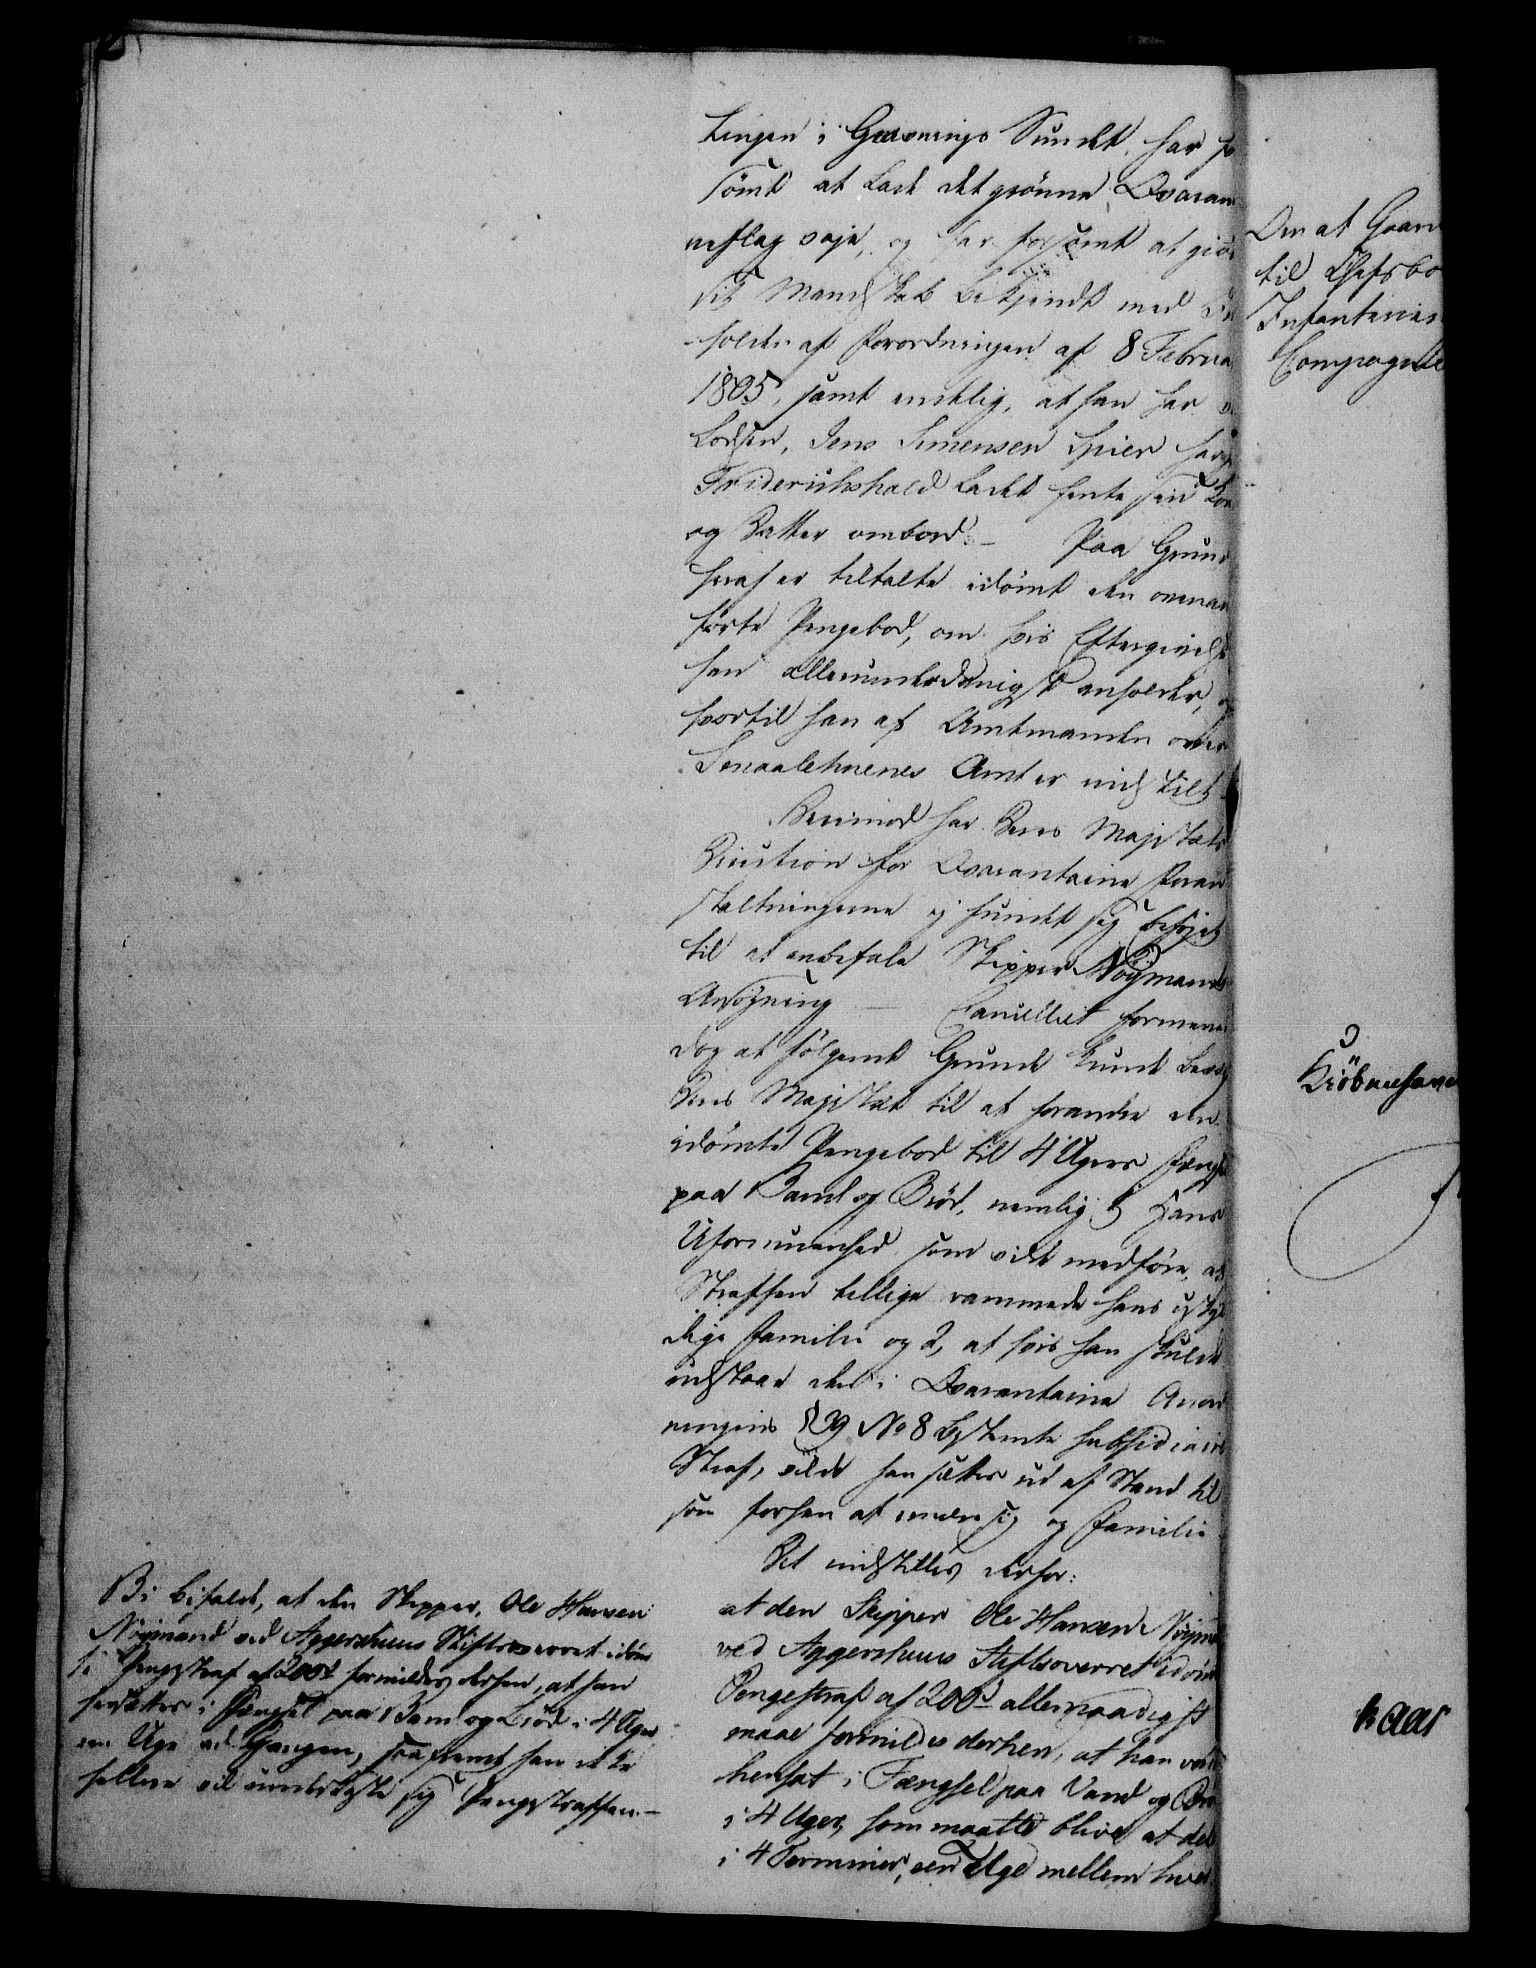 tingen i Græsnings Sundet, har for
sömt at lade det grönne Qvaran
neflag vaje, og har forsömt at giör
sit Mandskab bekjendt med In
holdet af Forordningen af 8 Februa
1805, samt endelig, at han har
Lodsen, Jens Simensen Spier fra
Friderichshald ladet hente sin Kone
og Datter ombord. - Paa Grund
heraf er tiltalte idömt den ommeld
förte Pengebod, om hvis Eftergivelse
han allerunderdanigst anholder, og
hvortil han af Amtmanden over
Smaalehnenes Amt er indstillet.
Derimod har Deres Majestæts
Direction for Qvarantaine Foran
staltningerne ej fundet sig beföjet
til at anbefale Skipper Nöymands
Ansögning - Cancelliet formener
dog at fölgende Grunde kunde bevæge
Deres Majestæt til at forandre den
idömte Pengebod til 4 Ugers Fængsel
paa Vand og Bröd, nemlig 1) Hans
Uformuenhed som vilde medföre, at
Straffen tillige rammede hans uskyl
dige Familie og 2, at hvis han skulde
udstaae den i Qvarantaine Anord
ningens § 39 No 8 bestemte subsidiaire
Straf, vilde han sættes ud af Stand til
som forhen at ernære sig og Familie
Det indstilles derfor:
at den Skipper Ole Hansen Nöymand
ved Aggershuus Stiftsoverret idömte
Pengestraf af 200 rd allernaadigst
maae formildes derhen, at han vorder
hensat i Fængsel paa Vand og Bröd
i 4 Uger, som maatte blive at dele
i 4 Terminer, een Uge mellem hver
Vi bifalde, at den Skipper, Ole Hansen
Nöymand ved Aggershuus Stiftsoverret idöm
te Pengestraf af 200 rd formildes derhen, at han
hensættes i Fængsel paa Vand og Bröd i 4 Uger
een Uge ad Gangen, saafremt han ikke
hellere vil underkaste sig Pengestraffen. -
Om at Gaar
til
Infanterie
Compagnie
Kiöbenhavn